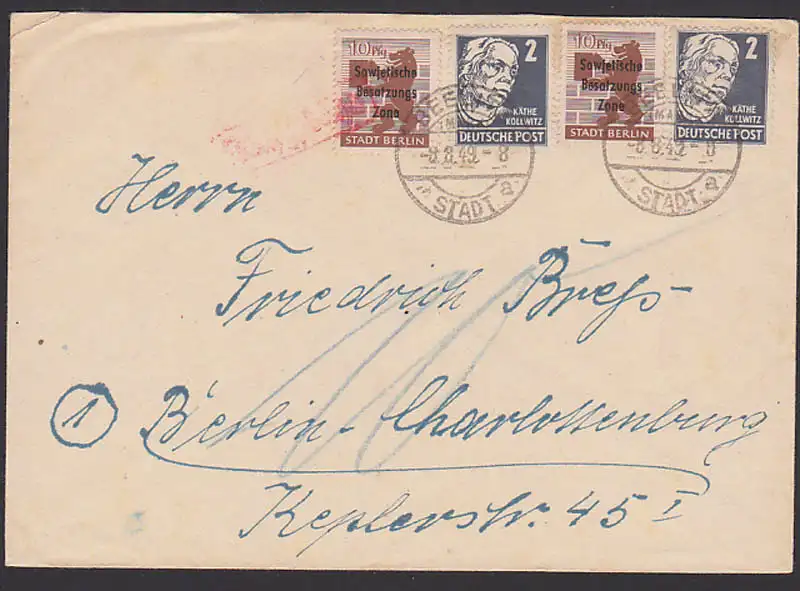 10 Pfg
Sowjetische
Besatzungs
Zone
STADT BERLIN
2
KÄTHE
KOLLWITZ
DEUTSCHE POST
10 Pfg
Sowjetische
Besatzungs
Zone
STADT BERLIN
2
KÄTHE
KOLLWITZ
DEUTSCHE POST
-8.8.49.-8
STADT a
-8.8.49.-8
STADT a
Herrn
Friedrich Breß-
1 Berlin-Charlottenburg
Keplerstr. 45 I